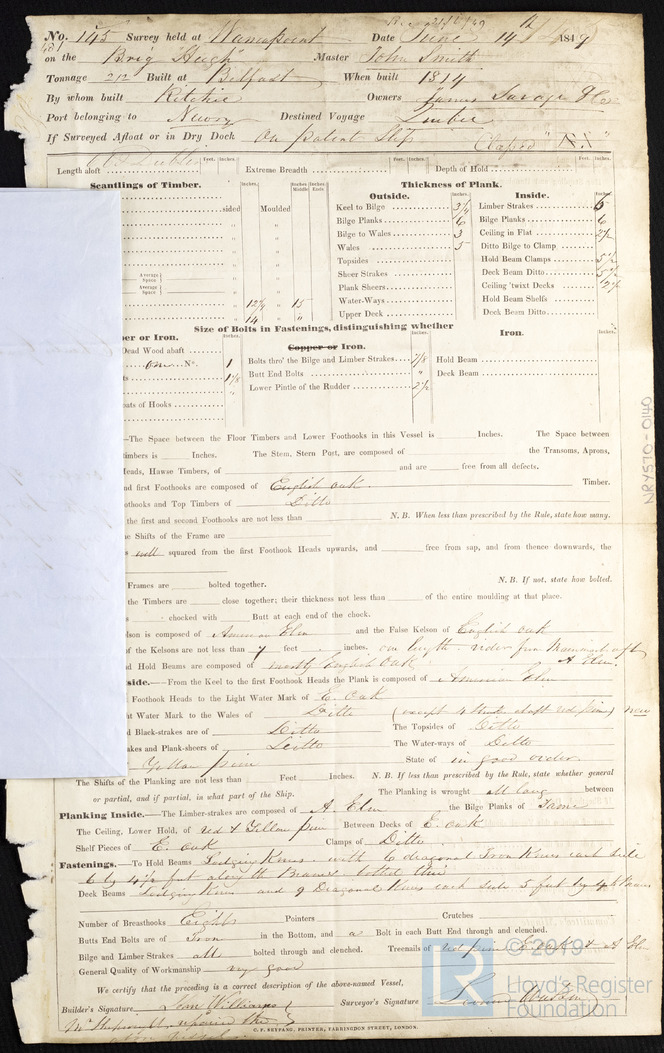 No. 145 Survey held at Warrenpoint Date June 14th 1849
on the Brig "Hugh" Master John Smith
Tonnage 212 Built at Belfast When built 1814
By whom built Ritchie Owners James Savage & Co
Port belonging to Newry Destined Voyage Timber
If Surveyed Afloat or in Dry Dock On patent Slip
Feet. Inches. Feet. Inches. Feet. Inches.
Length aloft Extreme Breadth Depth of Hold
Scantlings of Timber. Thickness of Plank.
Outside. Inside.
sided Moulded Keel to Bilge 3 1/4 Limber Strakes 6
Bilge Planks 6 Bilge Planks 6
Bilge to Wales 3 Ceiling in Flat 2 1/2
Wales 5 Ditto Bilge to Clamp
Topsides Hold Beam Clamps
Sheer Strakes Deck Beam Ditto
Plank Sheers Ceiling 'twixt Decks
Water-Ways Hold Beam Shelfs
Upper Deck Deck Beam Ditto
Size of Bolts in Fastenings, distinguishing whether
Copper or Iron. Iron.
er or Iron.
Dead Wood abaft Bolts thro' the Bilge and Limber Strakes 7/8 Hold Beam
Butt End Bolts " Deck Beam
Lower Pintle of the Rudder 2 1/2
oats of Hooks
—The Space between the Floor Timbers and Lower Foothooks in this Vessel is Inches. The Space between
imbers is Inches. The Stem, Stern Post, are composed of the Transoms, Aprons,
eads, Hawse Timbers, of and are free from all defects.
nd first Foothooks are composed of English oak. Timber.
othooks and Top Timbers of Ditto
the first and second Foothooks are not less than N.B. When less than prescribed by the Rule, state how many.
e Shifts of the Frame are
well squared from the first Foothook Heads upwards, and free from sap, and from thence downwards, the
Frames are bolted together. N.B. If not, state how bolted.
the Timbers are close together; their thickness not less than of the entire moulding at that place.
chocked with Butt at each end of the chock.
lson is composed of American Elm and the False Kelson of English oak
of the Kelsons are not less than 7 feet inches.
d Hold Beams are composed of mostly English Oak A. Elm.
side.—From the Keel to the first Foothook Heads the Plank is composed of American Elm
Foothook Heads to the Light Water Mark of E. Oak
ht Water Mark to the Wales of Ditto (except 4 Strakes abaft red pine) new
d Black-strakes are of Ditto The Topsides of Ditto
akes and Plank-sheers of Ditto The Water-ways of Ditto
Yellow pine State of in good order.
The Shifts of the Planking are not less than Feet Inches. N.B. If less than prescribed by the Rule, state whether general
or partial, and if partial, in what part of the Ship. The Planking is wrought all long between
Planking Inside.—The Limber-strakes are composed of A. Elm the Bilge Planks of Same
The Ceiling, Lower Hold, of red & Yellow pine Between Decks of E. oak
Shelf Pieces of E. oak Clamps of Ditto.
Fastenings.—To Hold Beams Lodging Knees with 6 dragonal Iron Knees each side
6 by 4 1/2 feet along the Beams bolted thro'
Deck Beams Lodging Knees and 9 Dragonal Knees each side 5 feet by 4 1/2 Beams
Number of Breasthooks Eight Pointers Crutches
Butts End Bolts are of Iron in the Bottom, and a Bolt in each Butt End through and clenched.
Bilge and Limber Strakes all bolted through and clenched. Treenails of red pine E oak & A Elm
General Quality of Workmanship very good
We certify that the preceding is a correct description of the above-named Vessel,
Builder's Signature Surveyor's Signature
C. F. SEYFANG, PRINTER, FARRINGDON STREET, LONDON.
NRYS70-0140
© 2019
LR
Lloyd's Register
Foundation